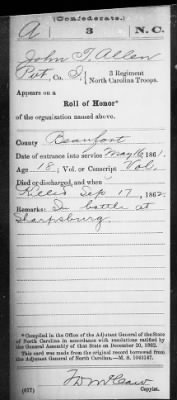 (Confederate.)
A 3 N.C.
John T. Allen
Pvt, Co. I, 3 Regiment
North Carolina Troops.
Appears on a
Roll of Honor*
of the organization named above.
County Beaufort
Date of entrance into service May 16, 1861.
Age 18; Vol. or Conscript Vol.
Died or discharged, and when
Killed Sep 17, 1862
Remarks: In battle at
Sharpsburg.
*Compiled in the Office of the Adjutant General of the State
of North Carolina in accordance with resolutions ratified by
the General Assembly of that State on December 20, 1862.
This card was made from the original record borrowed from
the Adjutant General of North Carolina.—M. S.
(627)
Copyist.